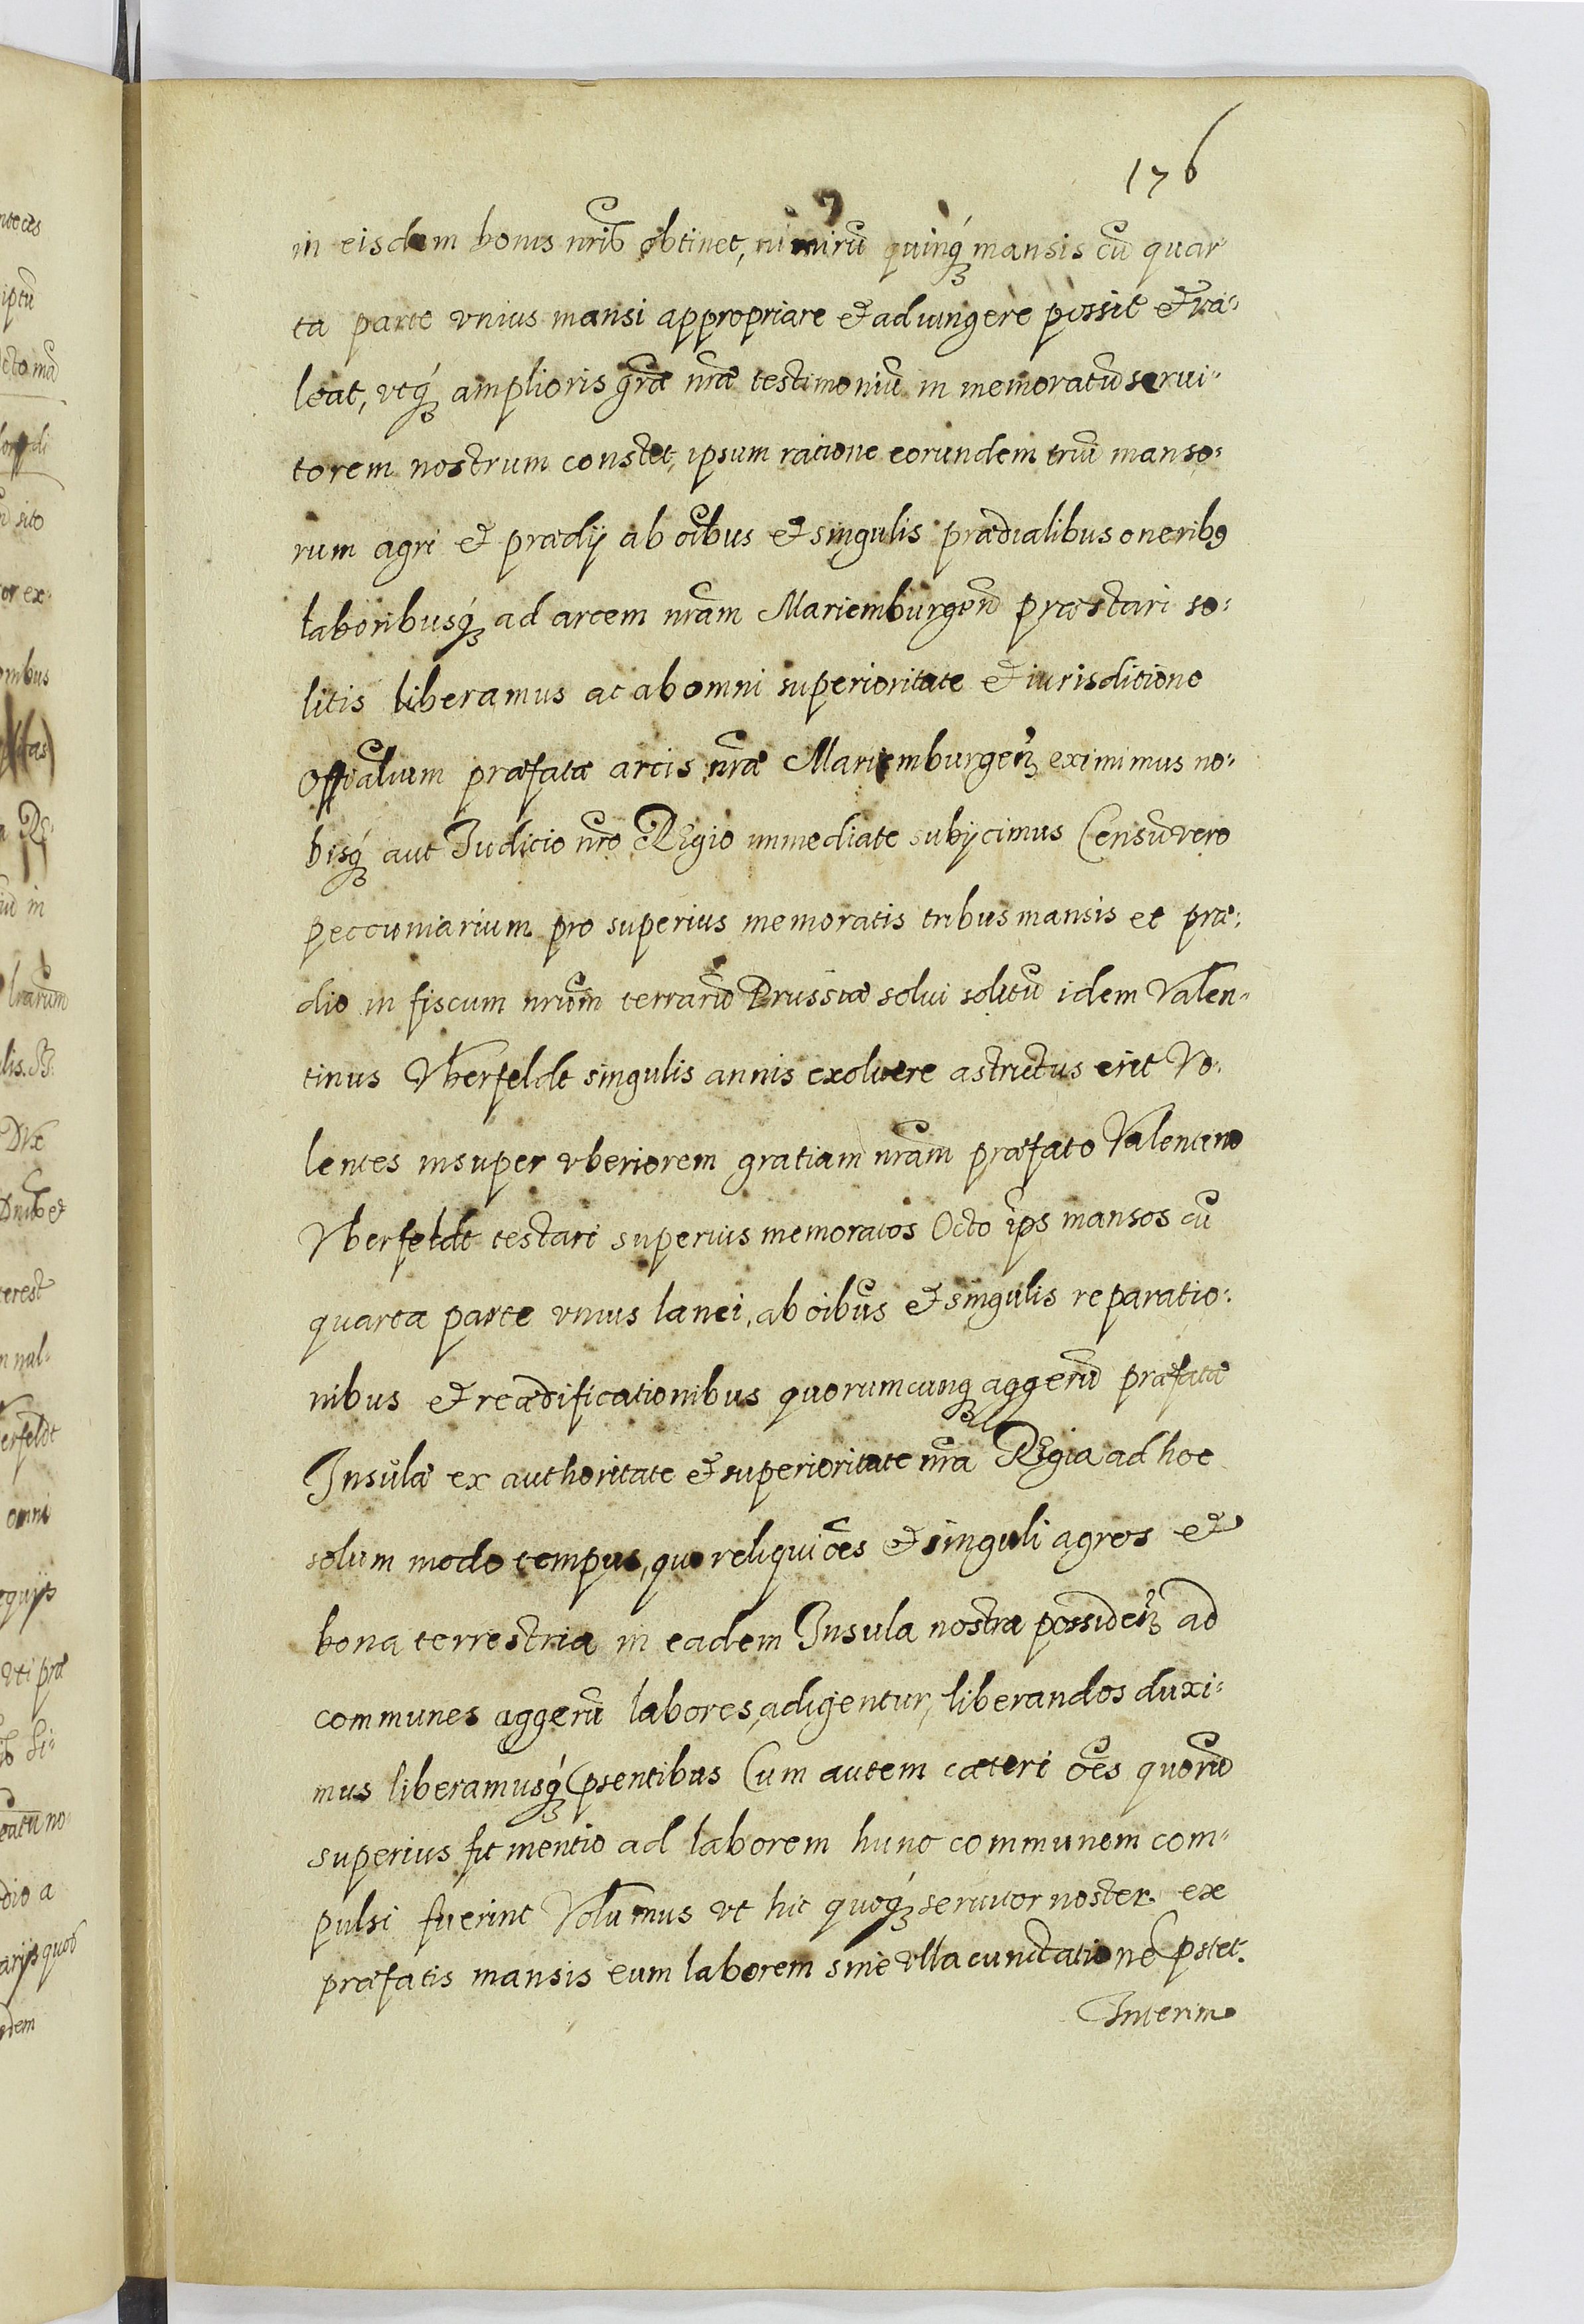 176
in eisdem bonis nrib obtinet, nimirũ quinq́ mansis cũ quar-
ta parte vnius mansi appropriare & adiungere possit & va-
leat, vtq́ amplioris grãe nrãe testimoniũ in memoratũ serui-
torem nostrum constet, ipsum ratione eorundem triũ manso-
rum agri & prædij ab oĩbus & singulis prædialibus oneribꝰ
laboribusq́ ad arcem nrãm Mariemburgeñ præstari so-
litis liberamus ac ab omni superioritate & iurisditione
Offĩcalium præfatæ arcis nrãe Mariemburgeñ eximimus no-
bisq́ aut Judicio nrõ Regio immediate subijcimus Censũ vero
peccuniarium pro superius memoratis tribus mansis et præ-
dio in fiscum nrũm terrarũ Prussiæ solui solitũ idem Valen-
tinus Vberfeldt singulis annis exoluere astrictus erit Vo-
lentes insuper vberiorem gratiam nrãm præfato Valentino
Vberfeldt testari superius memoratos Octo ip̃s mansos cũ
quarta parte vnius lanei, ab oĩbus & singulis reparatio-
nibus & reædificationibus quorumcunq aggerũ præfatæ
Insulæ ex authoritate & superioritate nrã Regia ad hoc
solum modo tempus, quo reliqui oẽs & singuli agros &
bona terrestria in eadem Insula nostra possideñ ad
communes aggerũ labores, adigentur, liberandos duxi-
mus liberamusq́ p̃sentibus Cum autem cæteri oẽs quorũ
superius fit mentio ad laborem hunc communem com-
pulsi fuerint Volumus vt hic quoq́ seruitor noster ex
præfatis mansis eum laborem sine vlla cunctatione p̃stet.
Interim